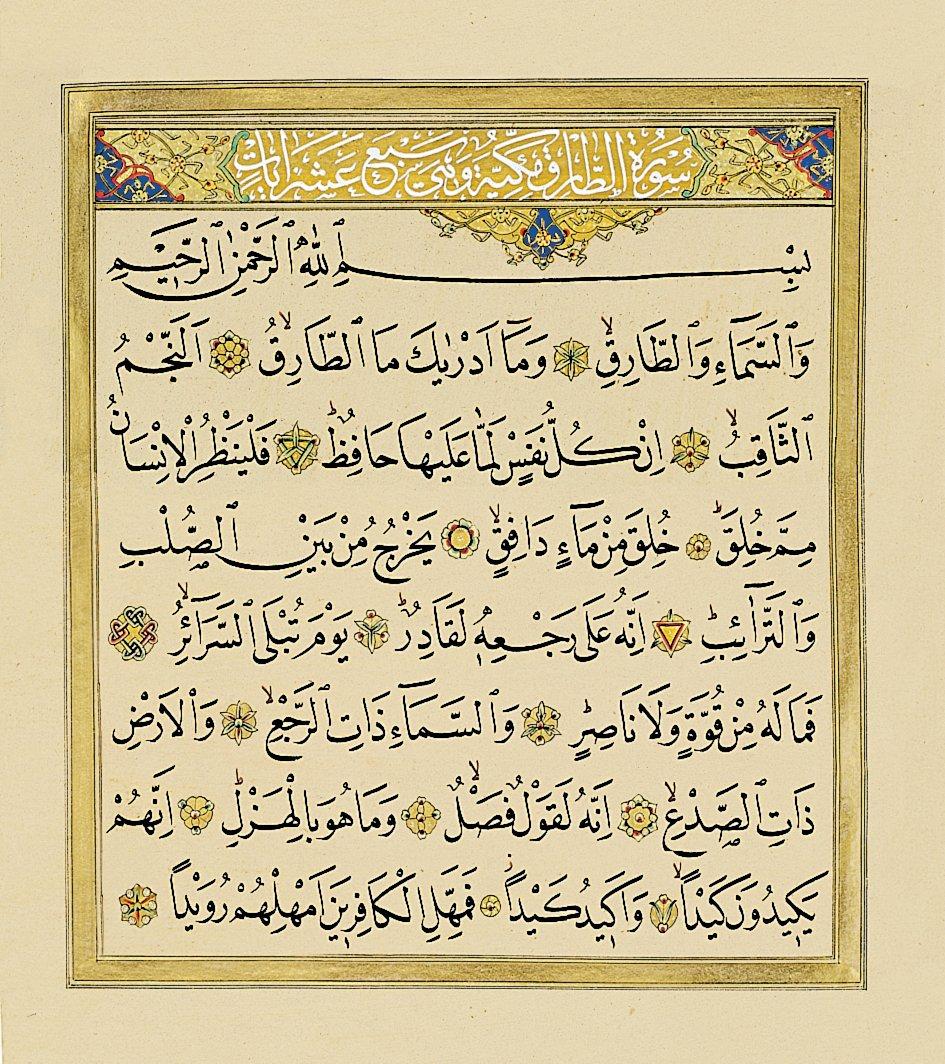 سُورَةُ الطَّارِقِ مَكِّيَّةٌ وَهِيَ سَبْعَ عَشَرَ اٰيَاتٍ
بِسْمِ اللّٰهِ الرَّحْمٰنِ الرَّحِيمِ
وَالسَّمَاءِ وَالطَّارِقِۙ وَمَا اَدْرٰيكَ مَا الطَّارِقُۙ اَلنَّجْمُ
الثَّاقِبُۙ اِنْ كُلُّ نَفْسٍ لَمَّا عَلَيْهَا حَافِظٌۜ فَلْيَنْظُرِ الْاِنْسَانُ
مِمَّ خُلِقَۜ خُلِقَ مِنْ مَاءٍ دَافِقٍۙ يَخْرُجُ مِنْ بَيْنِ الصُّلْبِ
وَالتَّرَائِبِۜ اِنَّهُ عَلٰى رَجْعِهِ لَقَادِرٌۜ يَوْمَ تُبْلَى السَّرَائِرُۙ
فَمَا لَهُ مِنْ قُوَّةٍ وَلَا نَاصِرٍۜ وَالسَّمَاءِ ذَاتِ الرَّجْعِۙ وَالْاَرْضِ
ذَاتِ الصَّدْعِۙ اِنَّهُ لَقَوْلٌ فَصْلٌۙ وَمَا هُوَ بِالْهَزْلِۜ اِنَّهُمْ
يَكِيدُونَ كَيْدًاۙ وَاَكِيدُ كَيْدًاۚ فَمَهِّلِ الْكَافِرِينَ اَمْهِلْهُمْ رُوَيْدًا